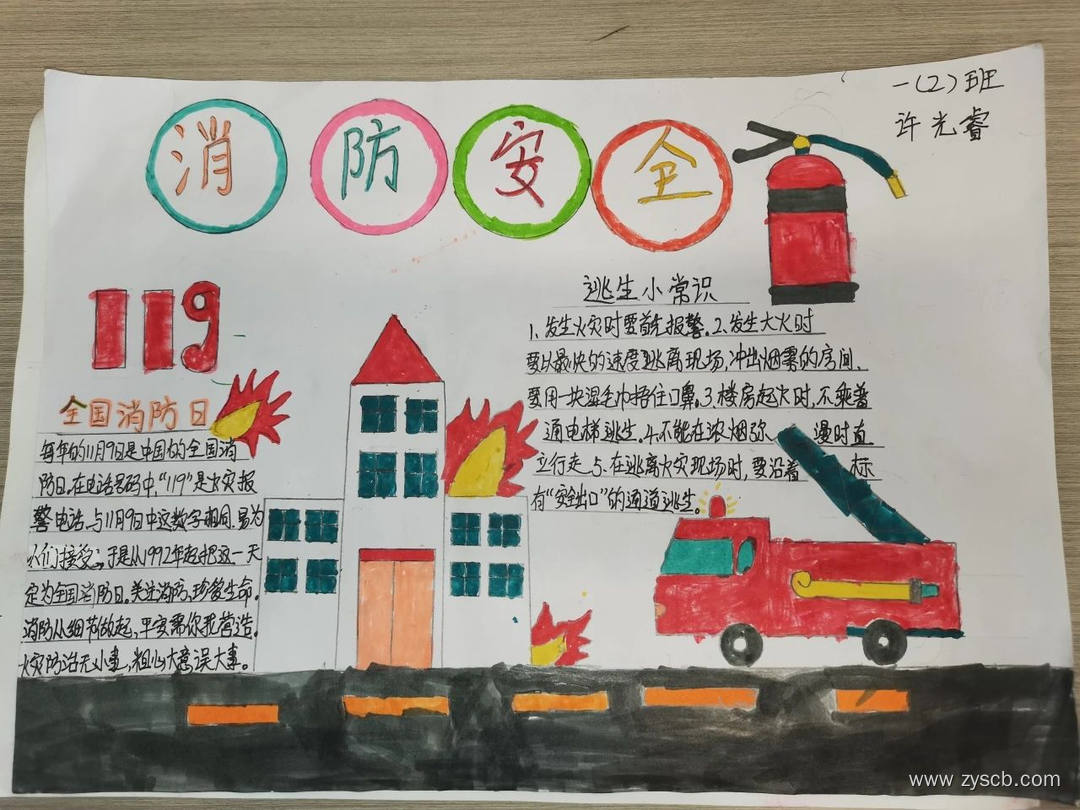 一(2)班
许光睿
消防安全
119
全国消防日
每年的11月9日是中国的全国消
防日。在电话号码中,“119”是火灾报
警电话,与11月9日中这数字相同,易为
人们接受;于是从1992年起把这一天
定为全国消防日。关注消防,珍爱生命。
消防从细节做起,平安需你我营造。
火灾防治无小事,粗心大意误大事。
逃生小常识
1、发生火灾时要首先报警。2、发生大火时
要以最快的速度逃离现场,冲出烟雾的房间,
要用一块湿毛巾捂住口鼻。3、楼房起火时,不乘普
通电梯逃生。4、不能在浓烟弥漫时直
立行走。5、在逃离火灾现场时,要沿着标
有“安全出口”的通道逃生。
www.zyscb.com